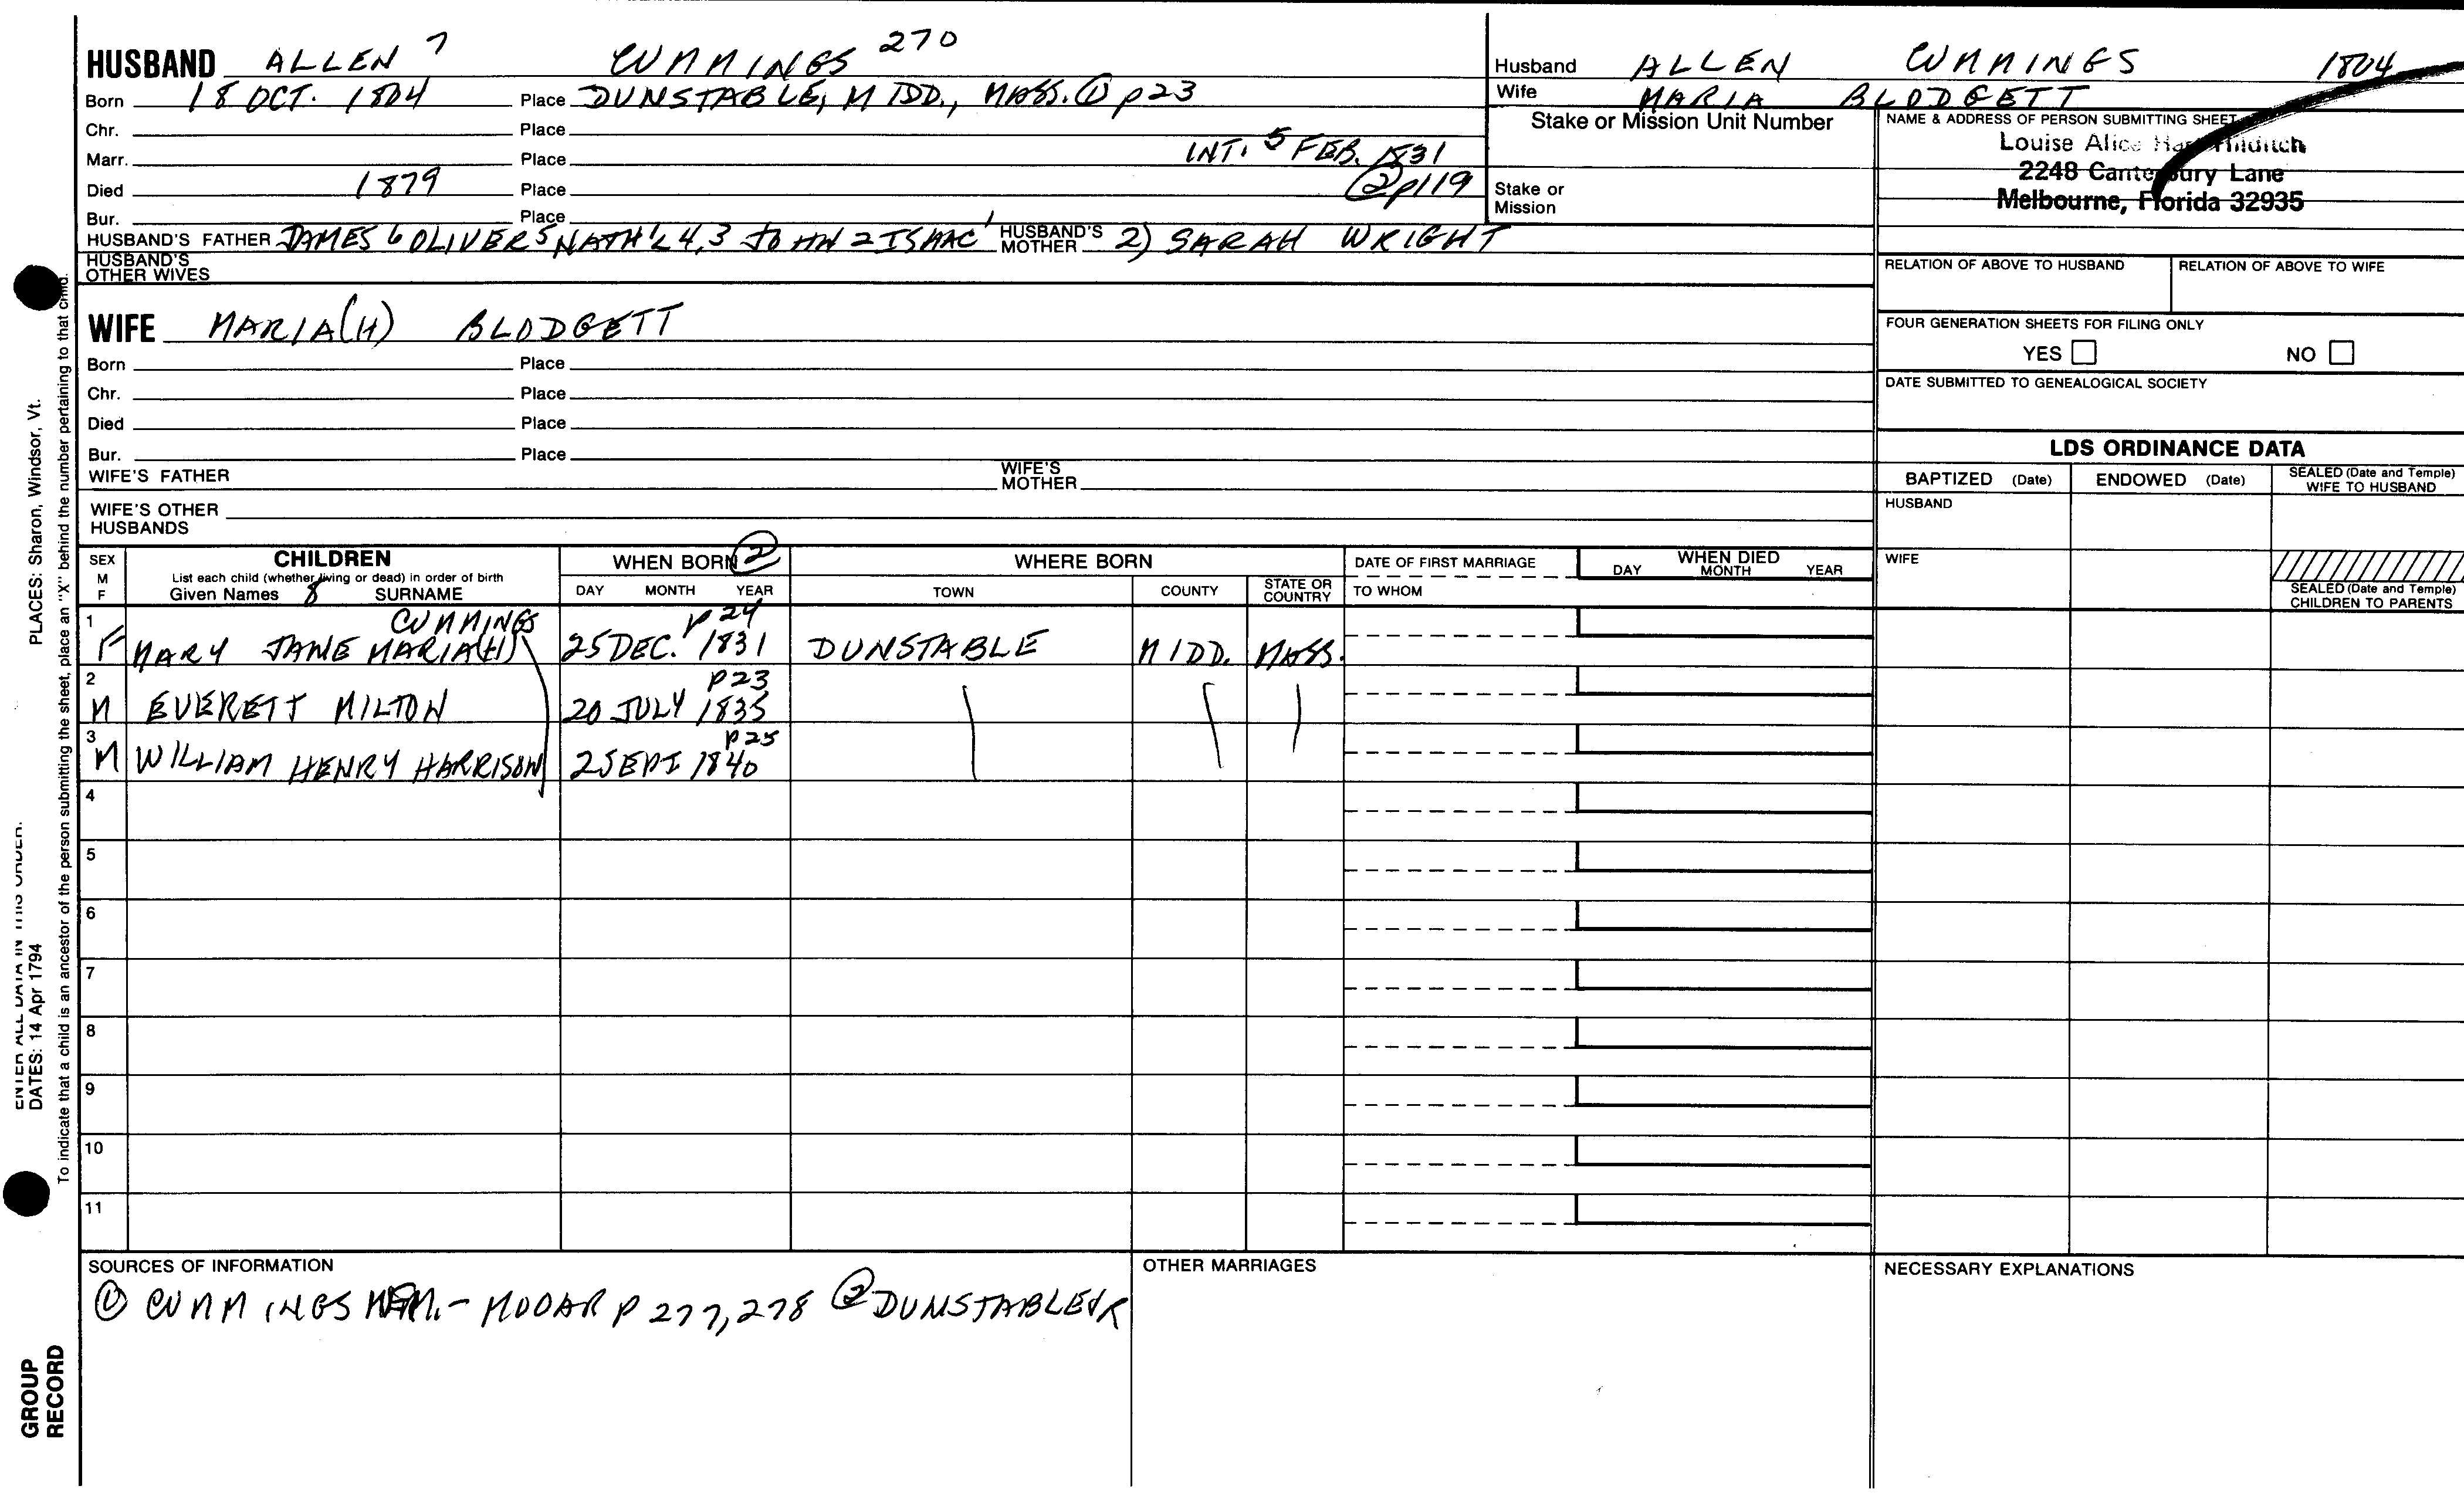 HUSBAND ALLEN 7 CUMMINGS 270
Born 18 OCT. 1804 Place DUNSTABLE, MIDD., MASS. ① p23
Chr. Place
Marr. Place INT. 5 FEB. 1831
Died 1879 Place ② p119
Bur. Place
HUSBAND'S FATHER JAMES 6 OLIVER 5 NATH'L 4,3 JOHN 2 ISAAC 1 HUSBAND'S MOTHER 2) SARAH WRIGHT
HUSBAND'S OTHER WIVES
WIFE MARIA(H) BLODGETT
Born Place
Chr. Place
Died Place
Bur. Place
WIFE'S FATHER WIFE'S MOTHER
WIFE'S OTHER HUSBANDS
Husband ALLEN CUMMINGS 1804
Wife MARIA BLODGETT
Stake or Mission Unit Number
Stake or Mission
NAME & ADDRESS OF PERSON SUBMITTING SHEET
Louise Alice
2248 Canterbury Lane
Melbourne, Florida 32935
RELATION OF ABOVE TO HUSBAND RELATION OF ABOVE TO WIFE
FOUR GENERATION SHEETS FOR FILING ONLY
YES NO
DATE SUBMITTED TO GENEALOGICAL SOCIETY
LDS ORDINANCE DATA
BAPTIZED (Date) ENDOWED (Date) SEALED (Date and Temple) WIFE TO HUSBAND
HUSBAND
WIFE
SEALED (Date and Temple) CHILDREN TO PARENTS
SEX M F
CHILDREN
List each child (whether living or dead) in order of birth
Given Names 8 SURNAME
WHEN BORN ②
DAY MONTH YEAR
WHERE BORN
TOWN COUNTY STATE OR COUNTRY
DATE OF FIRST MARRIAGE
TO WHOM
WHEN DIED
DAY MONTH YEAR
CUMMINGS p24
1 F MARY JANE MARIA(H) 25 DEC. 1831 DUNSTABLE MIDD. MASS.
p23
2 M EVERETT MILTON 20 JULY 1835
p25
3 M WILLIAM HENRY HARRISON 2 SEPT 1840
4
5
6
7
8
9
10
11
SOURCES OF INFORMATION
① CUMMINGS MEM. - MOOAR p 277, 278 ② DUNSTABLE VR
OTHER MARRIAGES
NECESSARY EXPLANATIONS
PLACES: Sharon, Windsor, Vt.
To indicate that a child is an ancestor of the person submitting the sheet, place an "X" behind the number pertaining to that child.
ENTER ALL DATA IN THIS ORDER.
DATES: 14 Apr 1794
GROUP
RECORD